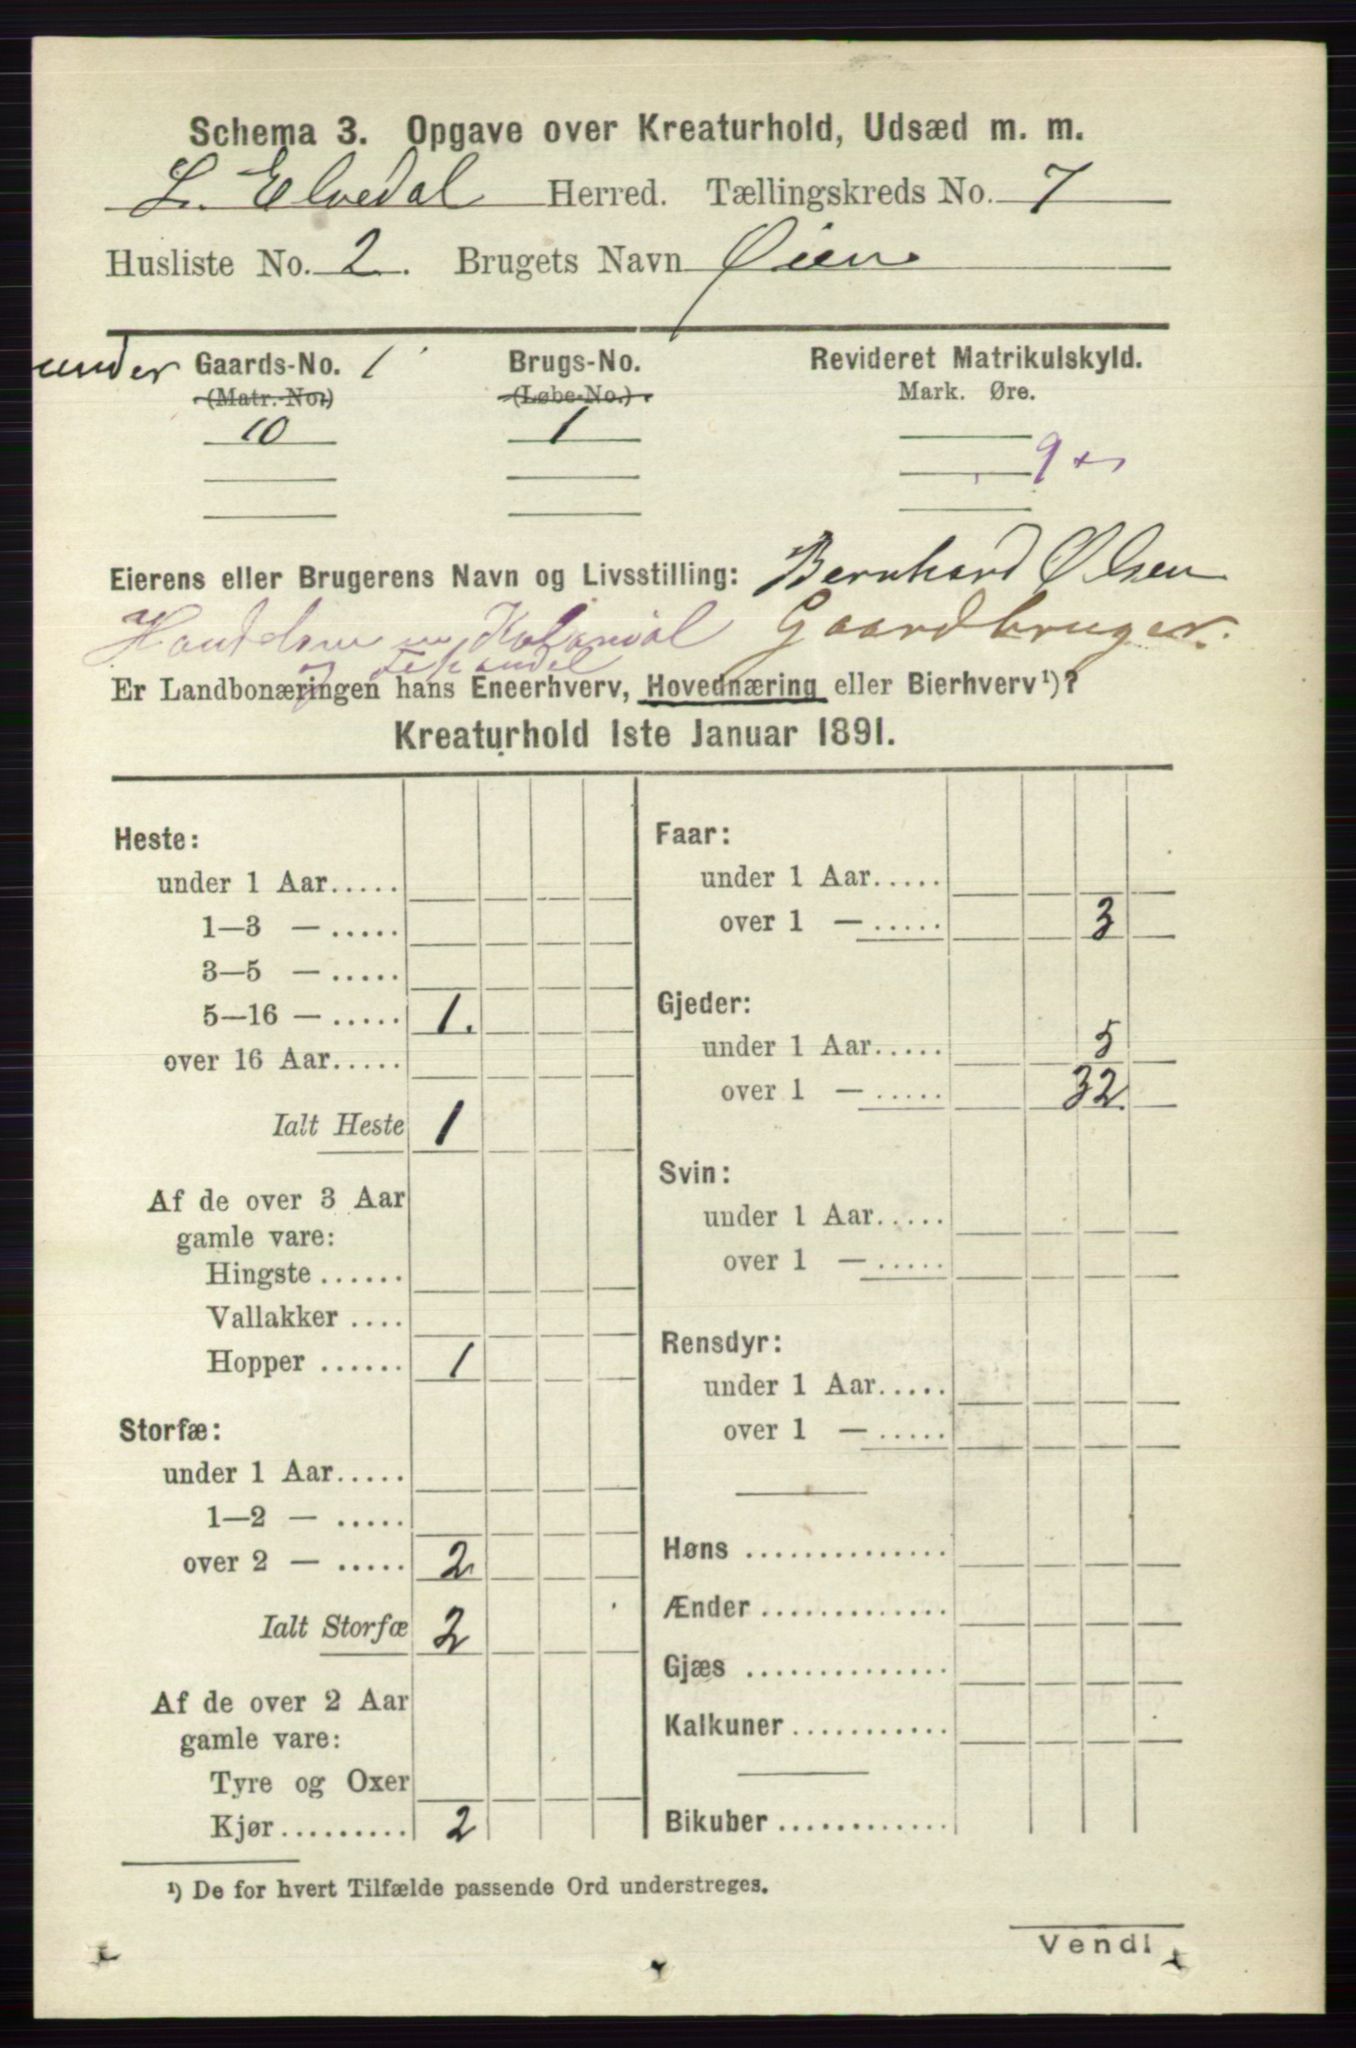 Schema 3. Opgave over Kreaturhold, Udsæd m. m.
L. Elvedal Herred. Tællingskreds No. 7
Husliste No. 2. Brugets Navn Øien
under Gaards-No. 1 Brugs-No. Revideret Matrikulskyld.
(Matr.-No.) (Løbe-No.) Mark. Øre.
10 1
9
Eierens eller Brugerens Navn og Livsstilling: Bernhard Olsen
Kolonial Gaardbruger.
Er Landbonæringen hans Eneerhverv, Hovednæring eller Bierhverv¹)?
Kreaturhold 1ste Januar 1891.
Heste:
under 1 Aar.....
1—3 — .....
3—5 — .....
5—16 — ..... 1.
over 16 Aar.....
Ialt Heste 1
Af de over 3 Aar
gamle vare:
Hingste ......
Vallakker ....
Hopper ...... 1
Storfæ:
under 1 Aar.....
1—2 — .....
over 2 — ..... 2
Ialt Storfæ 2
Af de over 2 Aar
gamle vare:
Tyre og Oxer
Kjør......... 2
Faar:
under 1 Aar.....
over 1 — ..... 3
Gjeder:
under 1 Aar..... 5
over 1 — ..... 32
Svin:
under 1 Aar.....
over 1 — .....
Rensdyr:
under 1 Aar.....
over 1 — .....
Høns ..............
Ænder .............
Gjæs ..............
Kalkuner ...........
Bikuber ............
¹) De for hvert Tilfælde passende Ord understreges.
Vend!